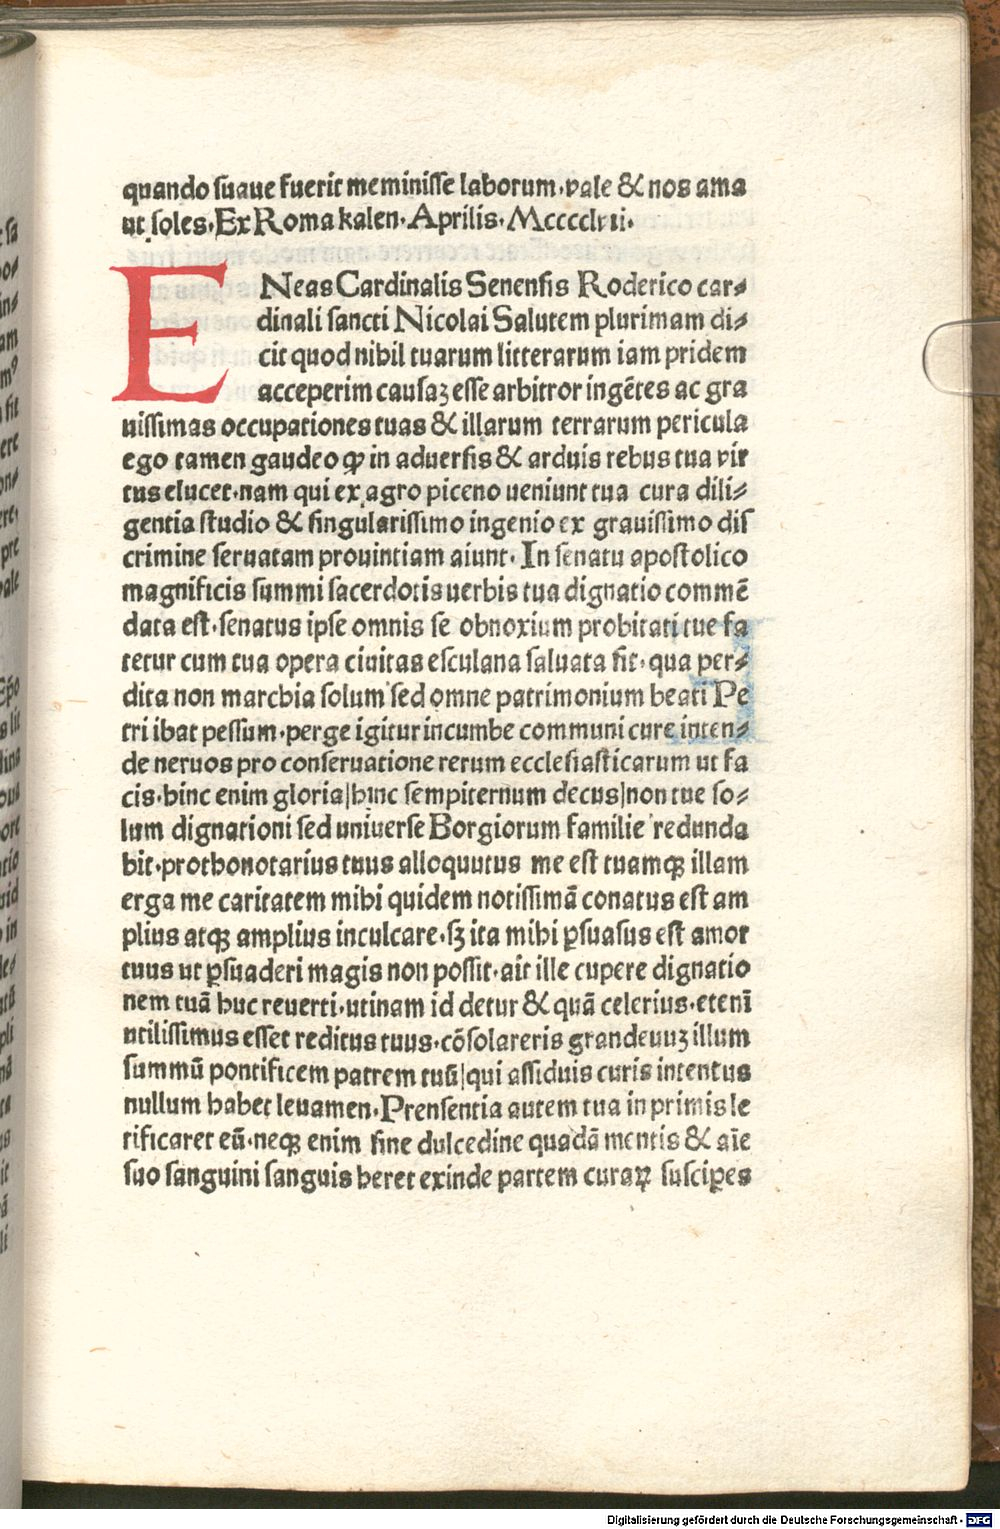 quando suaue fuerit meminisse laborum·vale & nos ama
ut soles·Ex Roma kalen·Aprilis·Mcccclvii·
ENeas Cardinalis Senensis Roderico car⸗
dinali sancti Nicolai Salutem plurimam di⸗
cit quod nihil tuarum litterarum iam pridem
acceperim causaʒ esse arbitror ingẽtes ac gra
uissimas occupationes tuas & illarum terrarum pericula
ego tamen gaudeo ꝙ in aduersis & arduis rebus tua vir
tus elucet·nam qui ex agro piceno ueniunt tua cura dili⸗
gentia studio & singularissimo ingenio ex grauissimo dis
crimine seruatam prouintiam aiunt· In senatu apostolico
magnificis summi sacerdotis uerbis tua dignatio commẽ
data est·senatus ipse omnis se obnoxium probitati tue fa
tetur cum tua opera ciuitas esculana saluata sit·qua per⸗
dita non marchia solum sed omne patrimonium beati Pe
tri ibat pessum·perge igitur incumbe communi cure inten⸗
de neruos pro conseruatione rerum ecclesiasticarum ut fa
cis·hinc enim gloria|hinc sempiternum decus|non tue so⸗
lum dignationi sed uniuerse Borgiorum familie redunda
bit·prothonotarius tuus alloquutus me est tuamqꝫ illam
erga me caritatem mihi quidem notissimã conatus est am
plius atqꝫ amplius inculcare·sꝫ ita mihi ꝑsuasus est amor
tuus ut ꝑsuaderi magis non possit·ait ille cupere dignatio
nem tuã huc reuerti·utinam id detur & quã celerius·etenĩ
utilissimus esset reditus tuus·cõsolareris grandeuuʒ illum
summũ pontificem patrem tuũ|qui assiduis curis intentus
nullum habet leuamen·Prensentia autem tua in primis le
tificaret eũ·neqꝫ enim sine dulcedine quadã mentis & aĩe
suo sanguini sanguis heret exinde partem curaꝝ susciꝑes
Digitalisierung gefördert durch die Deutsche Forschungsgemeinschaft - DFG